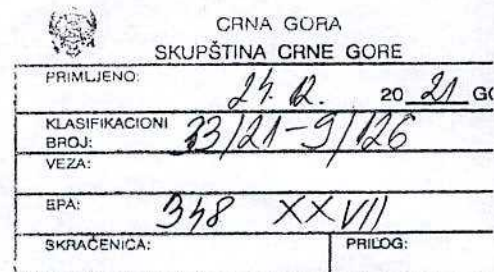 CRNA GORA
SKUPŠTINA CRNE GORE
PRIMLJENO: 24. 12. 20 21 GO
KLASIFIKACIONI BROJ: 23/21-9/126
VEZA:
EPA: 348 XXVII
SKRAĆENICA: PRILOG: